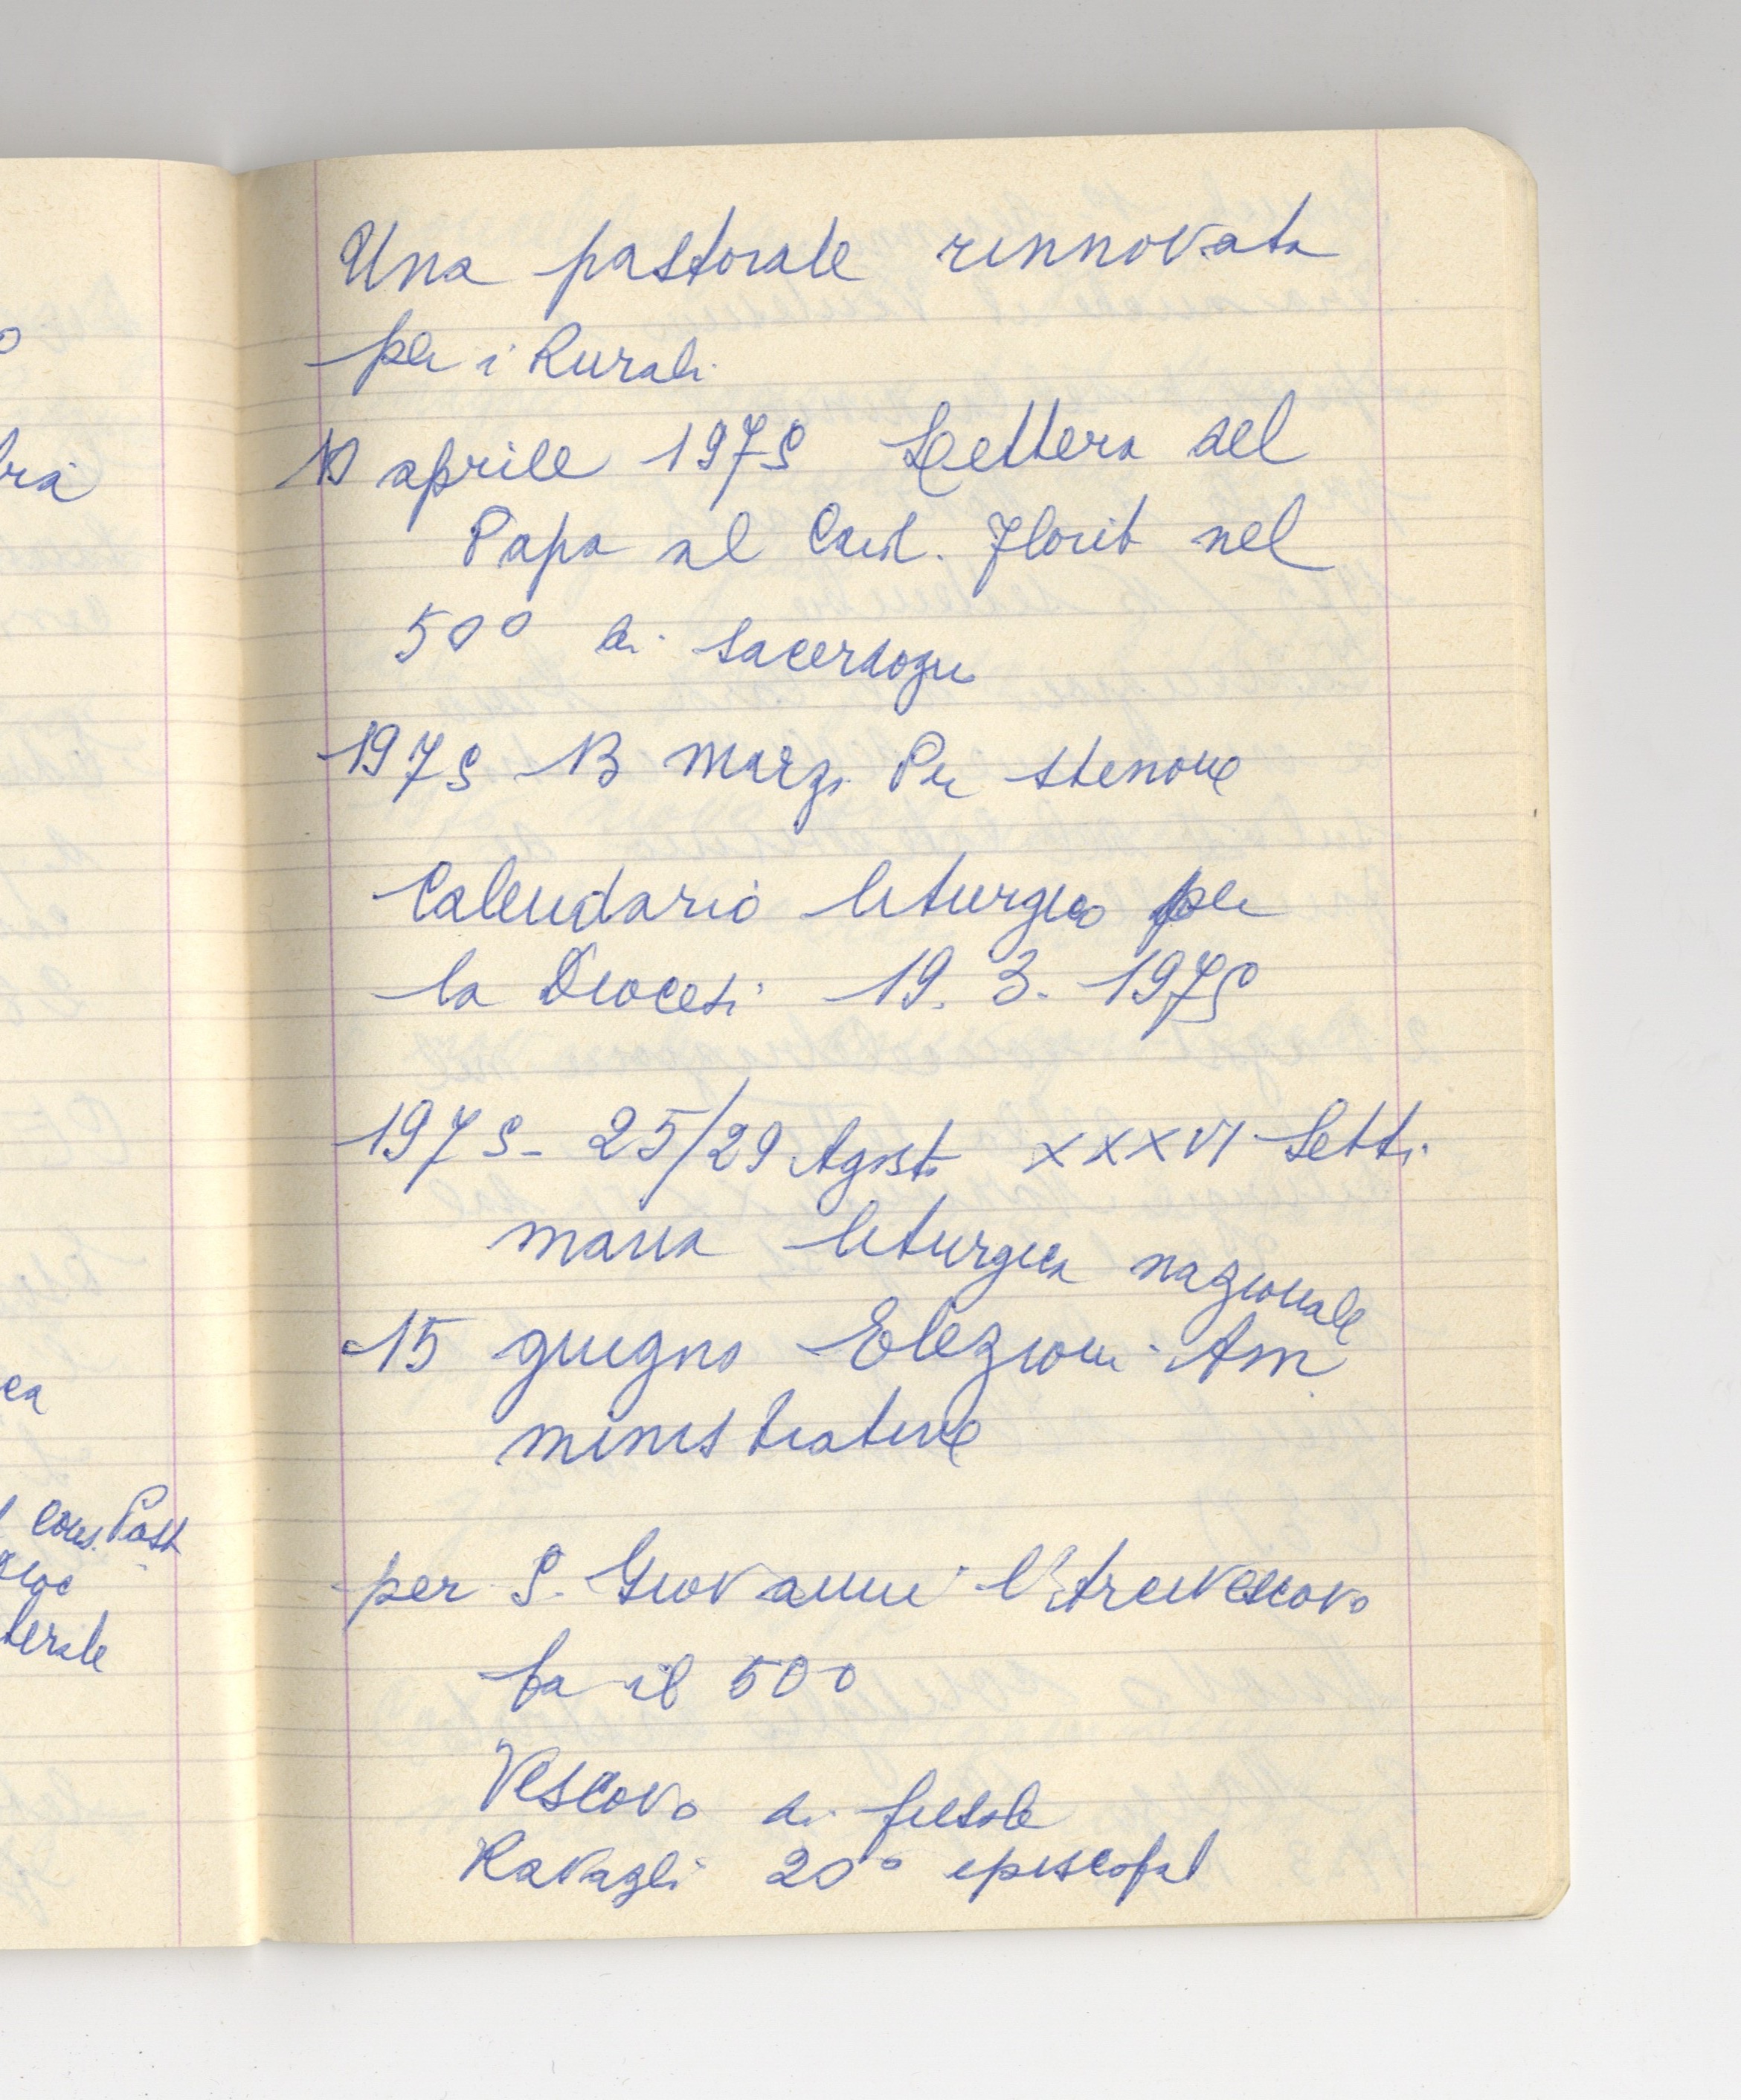 o
bra
ea
Cons. Past
terale
Una pastorale rinnovata
per i Rurali
aprile 1975 Lettera del
Papa al Card. Florit nel
50° di sacerdozio
1975 13 Marzo Per
Calendario liturgico per
la Diocesi 19. 3. 1975
1975 - 25/29 Agosto XXXVI Setti
mana liturgica nazionale
15 giugno Elezioni Am
ministrative
per S. Giovanni l'Arcivescovo
fa il 50°
Vescovo di fiesole
Ravagli 20° episcopal